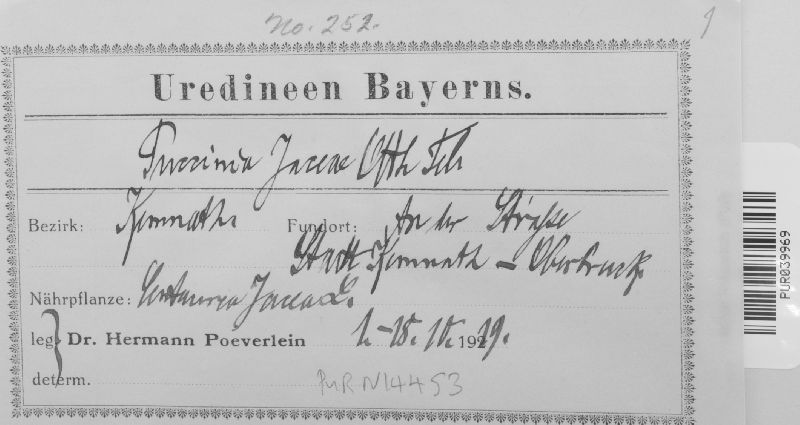 No. 252.
Uredineen Bayerns.
Puccinia Jaceae Otth
Bezirk: Kemnath. Fundort: An der Straße
Stadt Kemnath – Oberbruck.
Nährpflanze: Centaurea Jacea L.
leg. Dr. Hermann Poeverlein 1.-15. 10. 1929.
determ.
PUR N14453
PUR039969